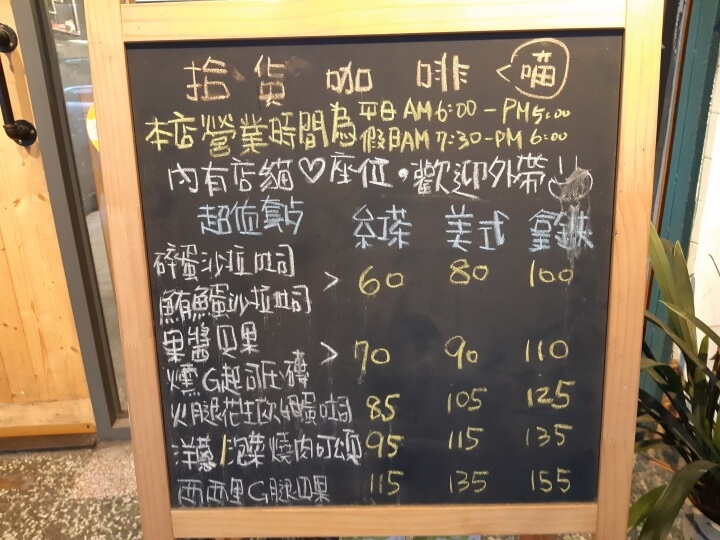 拾貨咖啡 喵
本店營業時間為 平日AM6:00-PM5:00
假日AM7:30-PM6:00
內有店貓♡座位,歡迎外帶
超值套餐 紅茶 美式 拿鐵
碎蛋沙拉吐司
> 60 80 100
鮪魚蛋沙拉吐司
果醬貝果
> 70 90 110
燻G起司压磚
火腿花生欧姆蛋吐司 85 105 125
洋蔥/泡菜燒肉可頌 95 115 135
西西里G腿貝果 115 135 155